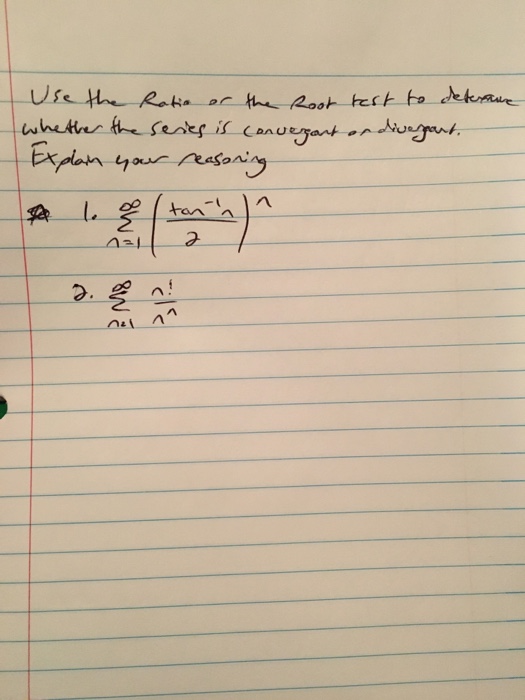 Use the Ratio or the Root test to determine
whether the series is convergant or divergant.
Explain your reasoning
1. ∞ Σ n=1 (tan⁻¹n / 2)ⁿ
2. ∞ Σ n=1 n! / nⁿ